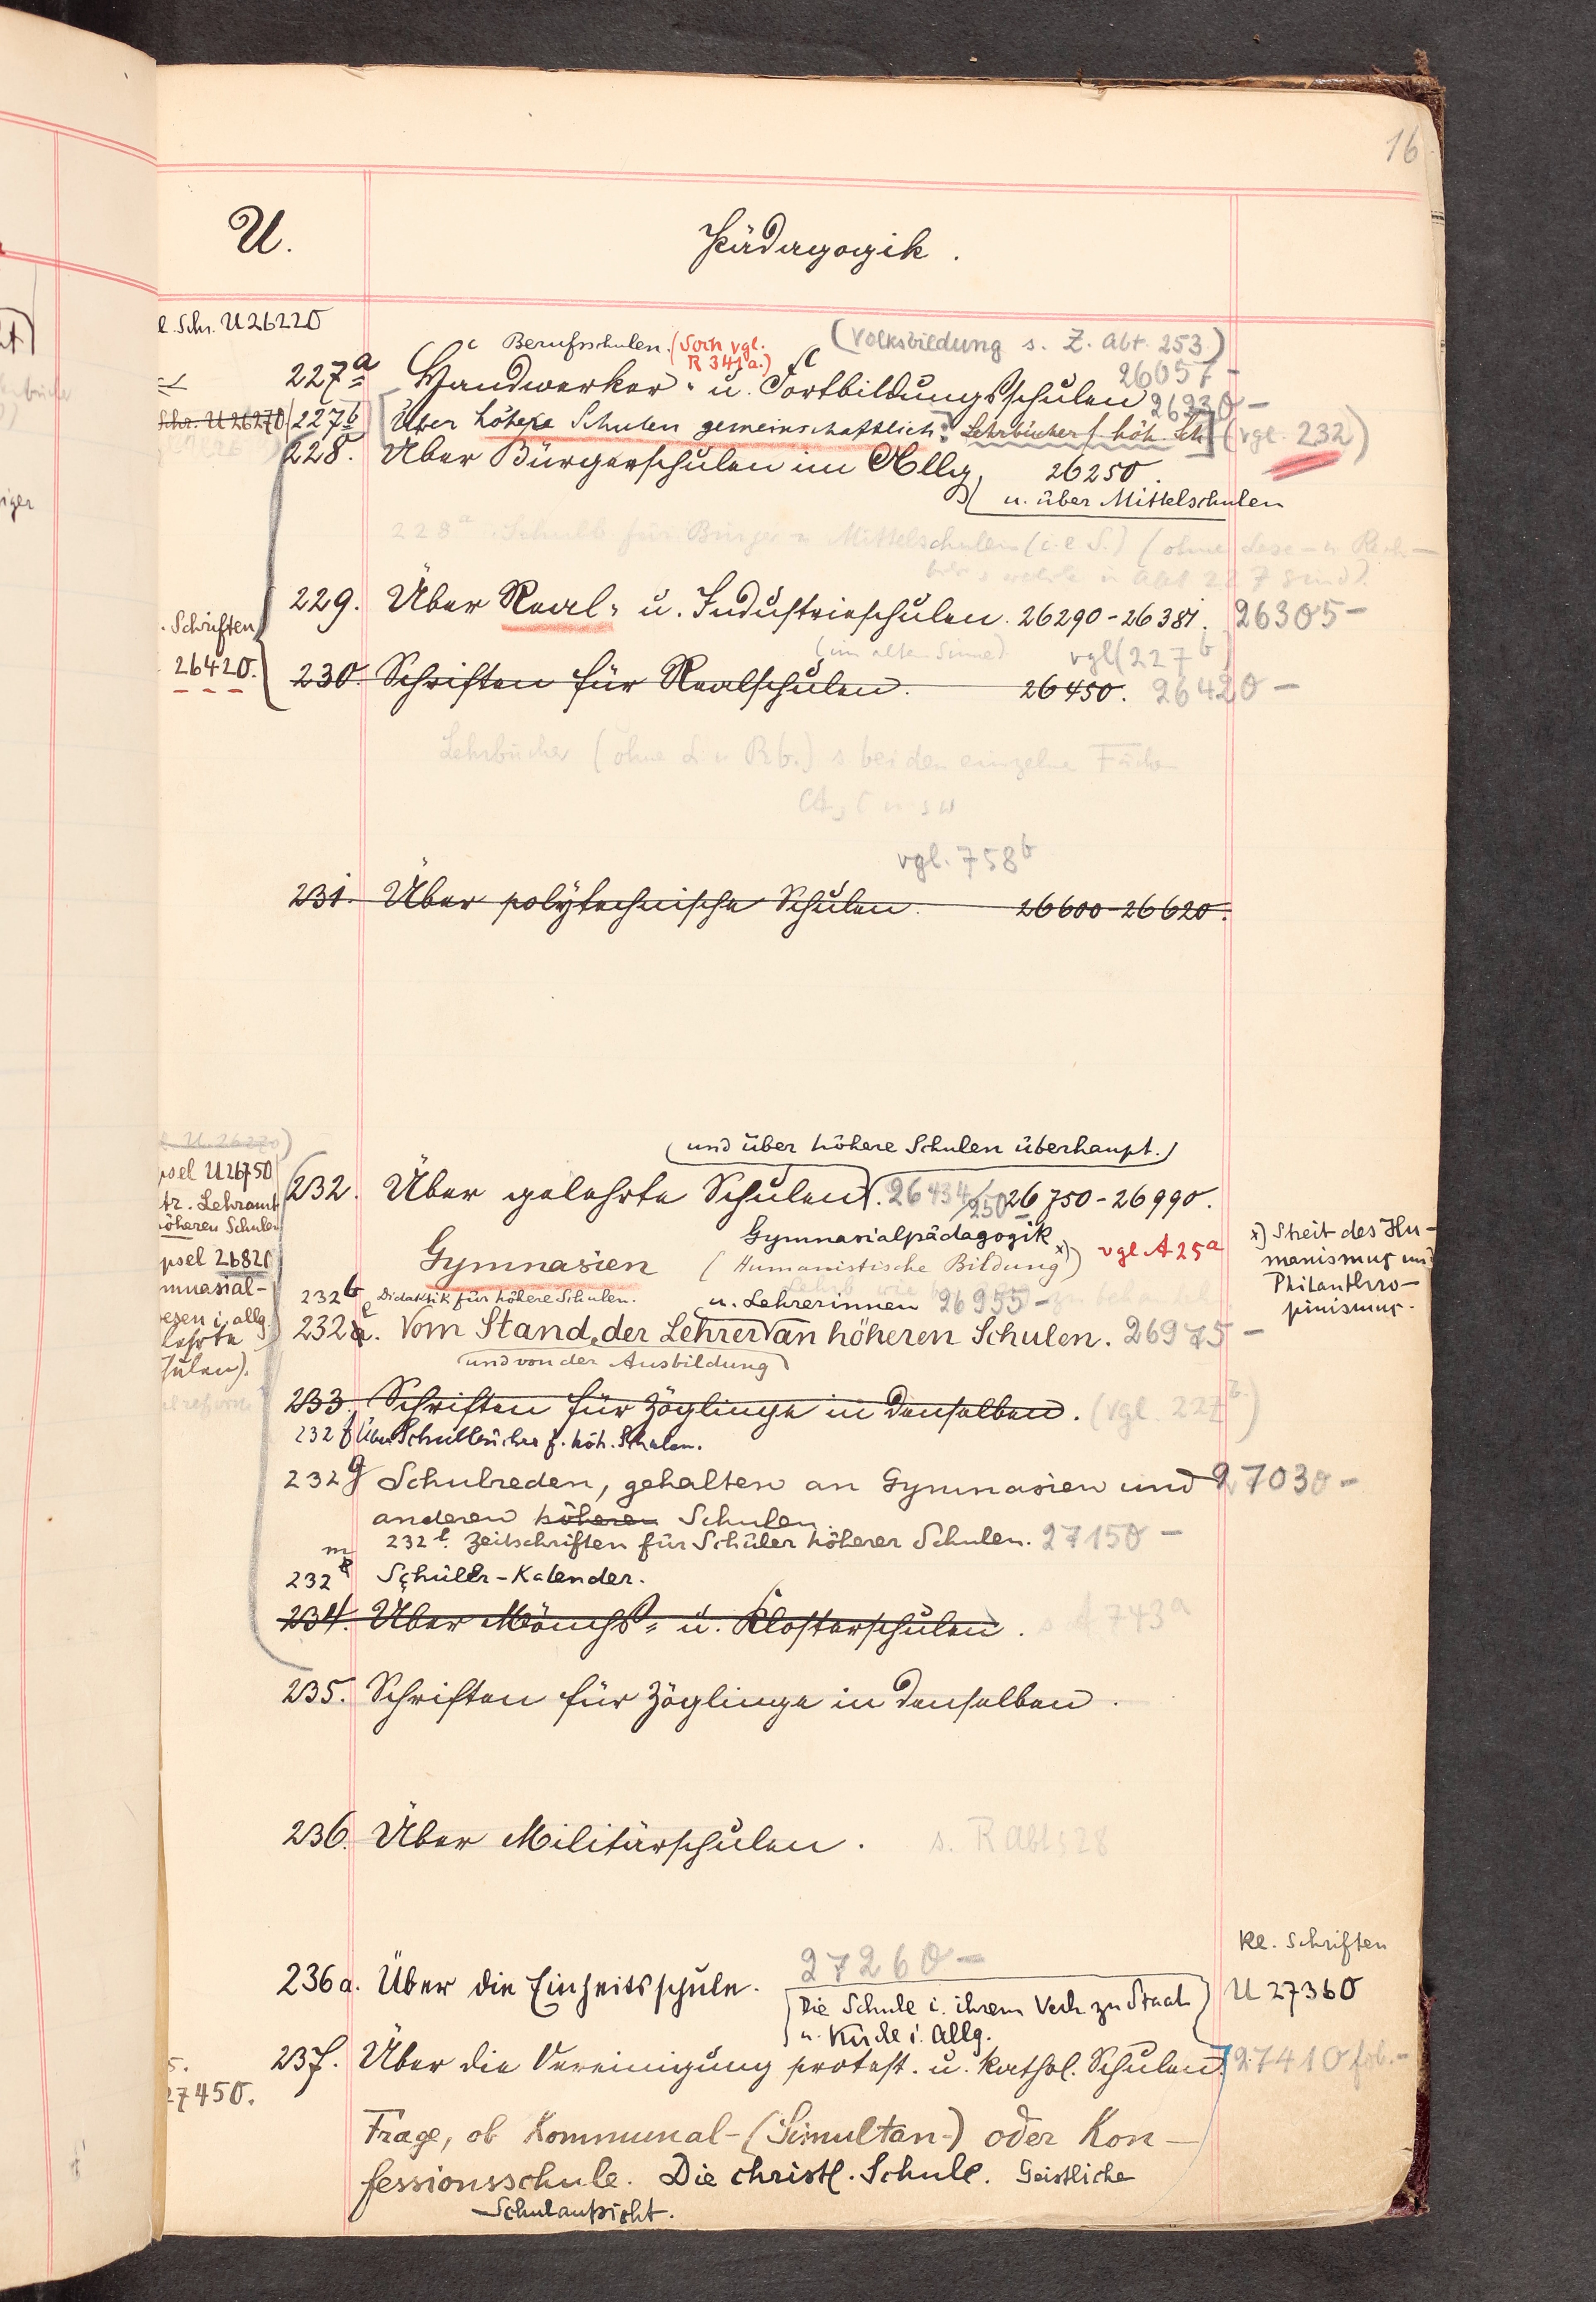 16
U.
Pädagogik.
l. Schr. U 26220
Berufsschulen. (Soch vgl.
R 341a.)
(Volksbildung s. Z. Abt. 253.)
26057 -
227a Handwerker- u. Fortbildungsschulen 26230 -
Schr. U 26270 227b [Über höhere Schulen gemeinschaftlich. Lehrbücher f. höh. Sch.] (vgl. 232)
228. Über Bürgerschulen im Allg. 26250.
u. über Mittelschulen
228a Schulb für Bürger u Mittelschulen (i. e S.) (ohne Lese- u. Rech-
welche in Abt 227 sind).
229. Über Real- u. Industrieschulen. 26290-26381. 26305 -
Schriften
26420.
(im alten Sinne) vgl (227b)
230. Schriften für Realschulen. 26450. 26420 -
Lehrbücher (ohne L. u Rb.) s bei den einzelnen Fächern
vgl. 758b
231. Über polytechnische Schulen. 26600-26620.
U. 26270)
psel U 26750
tr. Lehramt
höheren Schulen
psel 26820
mnasial-
wesen i. allg.
lehrte
Schulen).
(und über höhere Schulen überhaupt.)
232. Über gelehrte Schulen. 26434/250 26750-26990.
Gymnasialpädagogik
Gymnasien (Humanistische Bildung x)) vgl A 25a
x) Streit des Hu-
manismus und
Philanthro-
pinismus.
232b Didaktik für höhere Schulen.
u. Lehrerinnen 26955 -
232e. Vom Stand der Lehrer an höheren Schulen. 26975 -
und von der Ausbildung
233. Schriften für Zöglinge in denselben. (vgl. 227b.)
232f Über Schulbücher f. höh. Schulen.
232g Schulreden, gehalten an Gymnasien und 27030 -
anderen höheren Schulen.
232l. Zeitschriften für Schüler höherer Schulen. 27150 -
232m Schüler-Kalender.
234. Über Mönchs- u. Klosterschulen. s A 743a
235. Schriften für Zöglinge in denselben.
236. Über Militärschulen. s. R Abt 528
27260 -
Kl. Schriften
236a. Über die Einheitsschule. U 27360
(Die Schule i. ihrem Verh. zu Staat
u. Kirche i. Allg.)
237. Über die Vereinigung protest. u. kathol. Schulen. 27410 fol. -
27450.
Frage, ob Kommunal- (Simultan-) oder Kon-
fessionsschule. Die christl. Schule. Geistliche
Schulaufsicht.